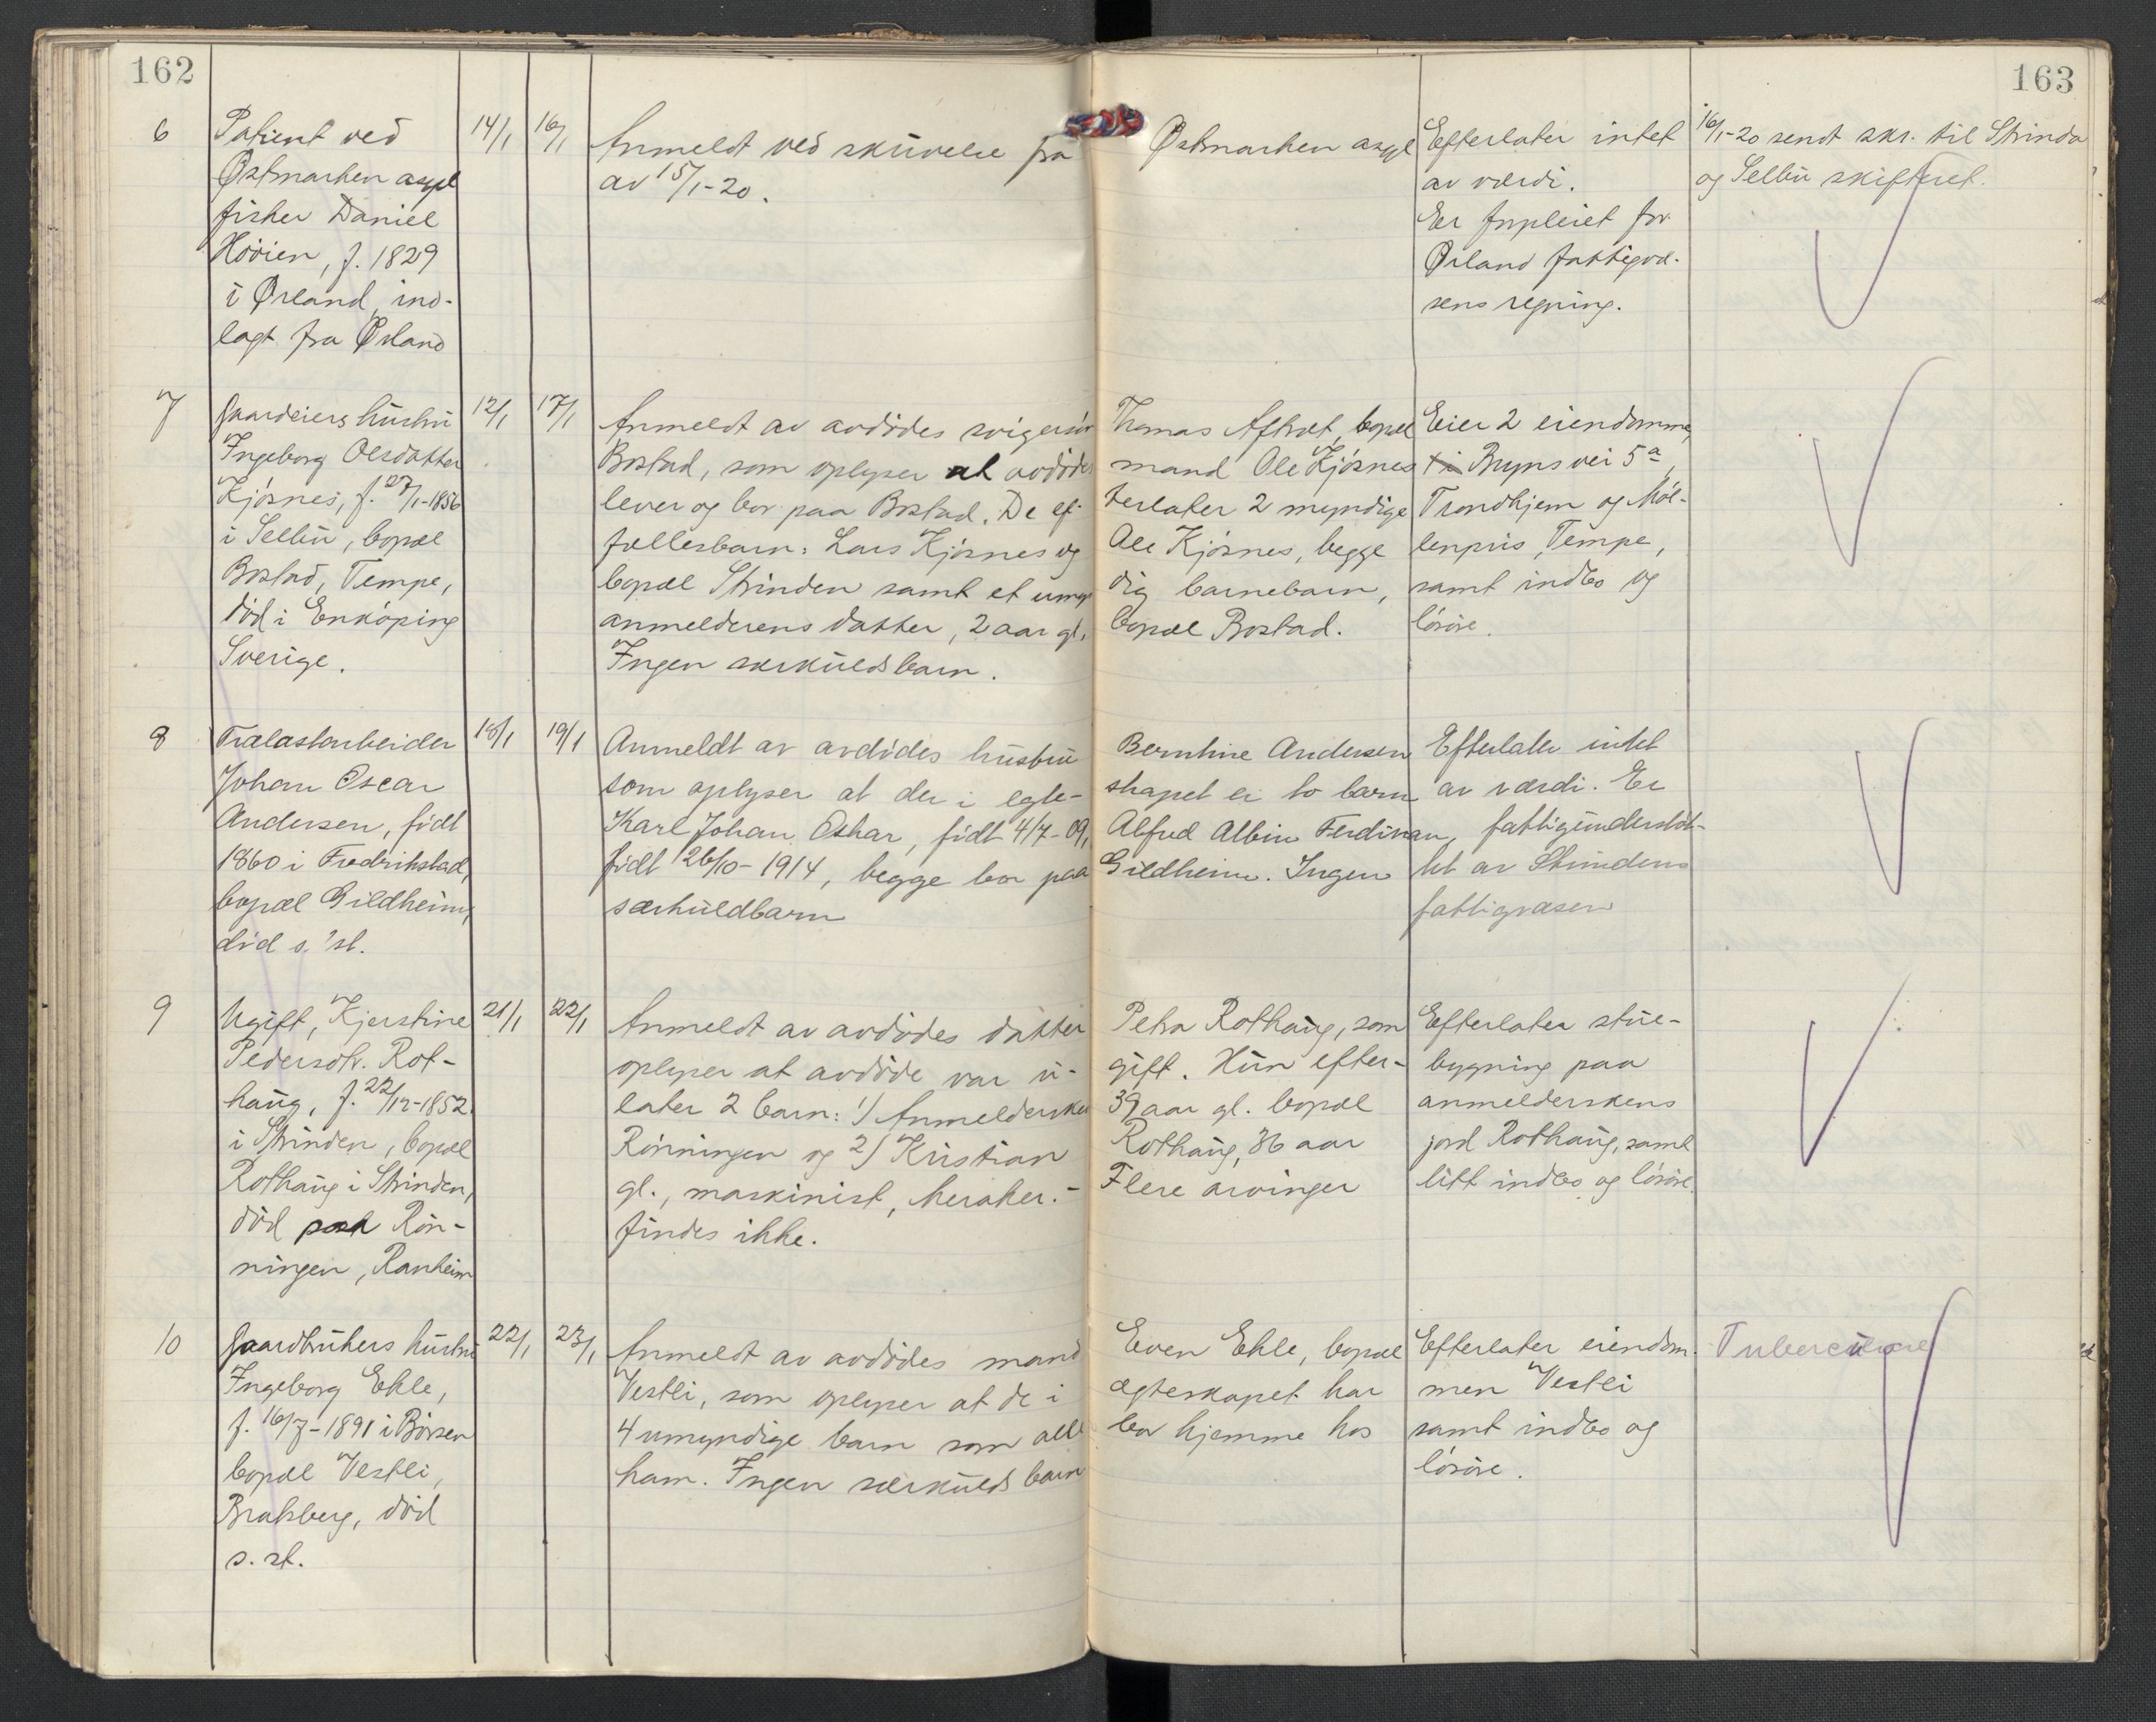 162
163
6 Patient ved 14/1 16/1 Anmeldt ved skrivelse fra Østmarken asyl Efterlater intet 16/1-20 sendt skr. til Strinda
Østmarken asyl av 15/1-20. av værdi. og Selbu skifteret.
fisker Daniel Er forpleiet for
Hövien, f. 1829 Ørland fattigvæ-
i Ørland, ind- sens regning.
lagt fra Ørland
7 Gaardeiers hustru 12/1 17/1 Anmeldt av avdödes svigersön Thomas Aftret, bopæl Eier 2 eiendomme,
Ingeborg Olesdatter Bostad, som oplyser at avdödes mand Ole Kjösnes Bryns vei 5a,
Kjösnes, f. 27/1-1856 lever og bor paa Bostad. De ef- terlater 2 myndige Trondhjem og Möl-
i Selbu, bopæl fællesbarn: Lars Kjösnes og Ole Kjösnes, begge lenpris, Tempe,
Bostad, Tempe, bopæl Strinden samt et umyn- dig barnebarn, samt indbo og
död i Enköping anmelderens datter, 2 aar gl. bopæl Bostad. lösöre.
Sverige. Ingen særkuldsbarn.
8 Trælastarbeider 18/1 19/1 Anmeldt av avdödes hustru Bernhine Andersen Efterlater intet
Johan Oscar som oplyser at der i egte- skapet er to barn av værdi. Er
Andersen, födt Karl Johan Oskar, födt 4/7-09, Alfred Albin Ferdinan, fattigunderstöt-
1860 i Fredrikstad, födt 26/10-1914, begge bor paa Gildheim. Ingen tet av Strindens
bopæl Gildheim, særkuldbarn fattigvæsen
död s. st.
9 Ugift, Kjerstine 21/1 22/1 Anmeldt av avdödes datter Petra Rothaug, som Efterlater stue-
Pedersdtr. Rot- oplyser at avdöde var u- gift. Hun efter- bygning paa
haug, f. 22/12-1852 later 2 barn: 1) Anmeldersken 39 aar gl. bopæl anmelderskens
i Strinden, bopæl Rönningen og 2) Kristian Rothaug, 36 aar jord Rothaug, samt
Rothaug i Strinden, gl., maskinist, Meraker.- Flere arvinger litt indbo og lösöre.
död paa Rön- findes ikke.
ningen, Ranheim
10 Gaardbrukers hustru 22/1 23/1 Anmeldt av avdödes mand Even Ekle, bopæl Efterlater eiendom- Tuberculose
Ingeborg Ekle, Vestli, som oplyser at de i ægteskapet har men Vestli
f. 16/7-1891 i Börsen 4 umyndige barn som alle bor hjemme hos samt indbo og
bopæl Vestli, ham. Ingen særkuldsbarn lösöre.
Bratsberg, död
s. st.